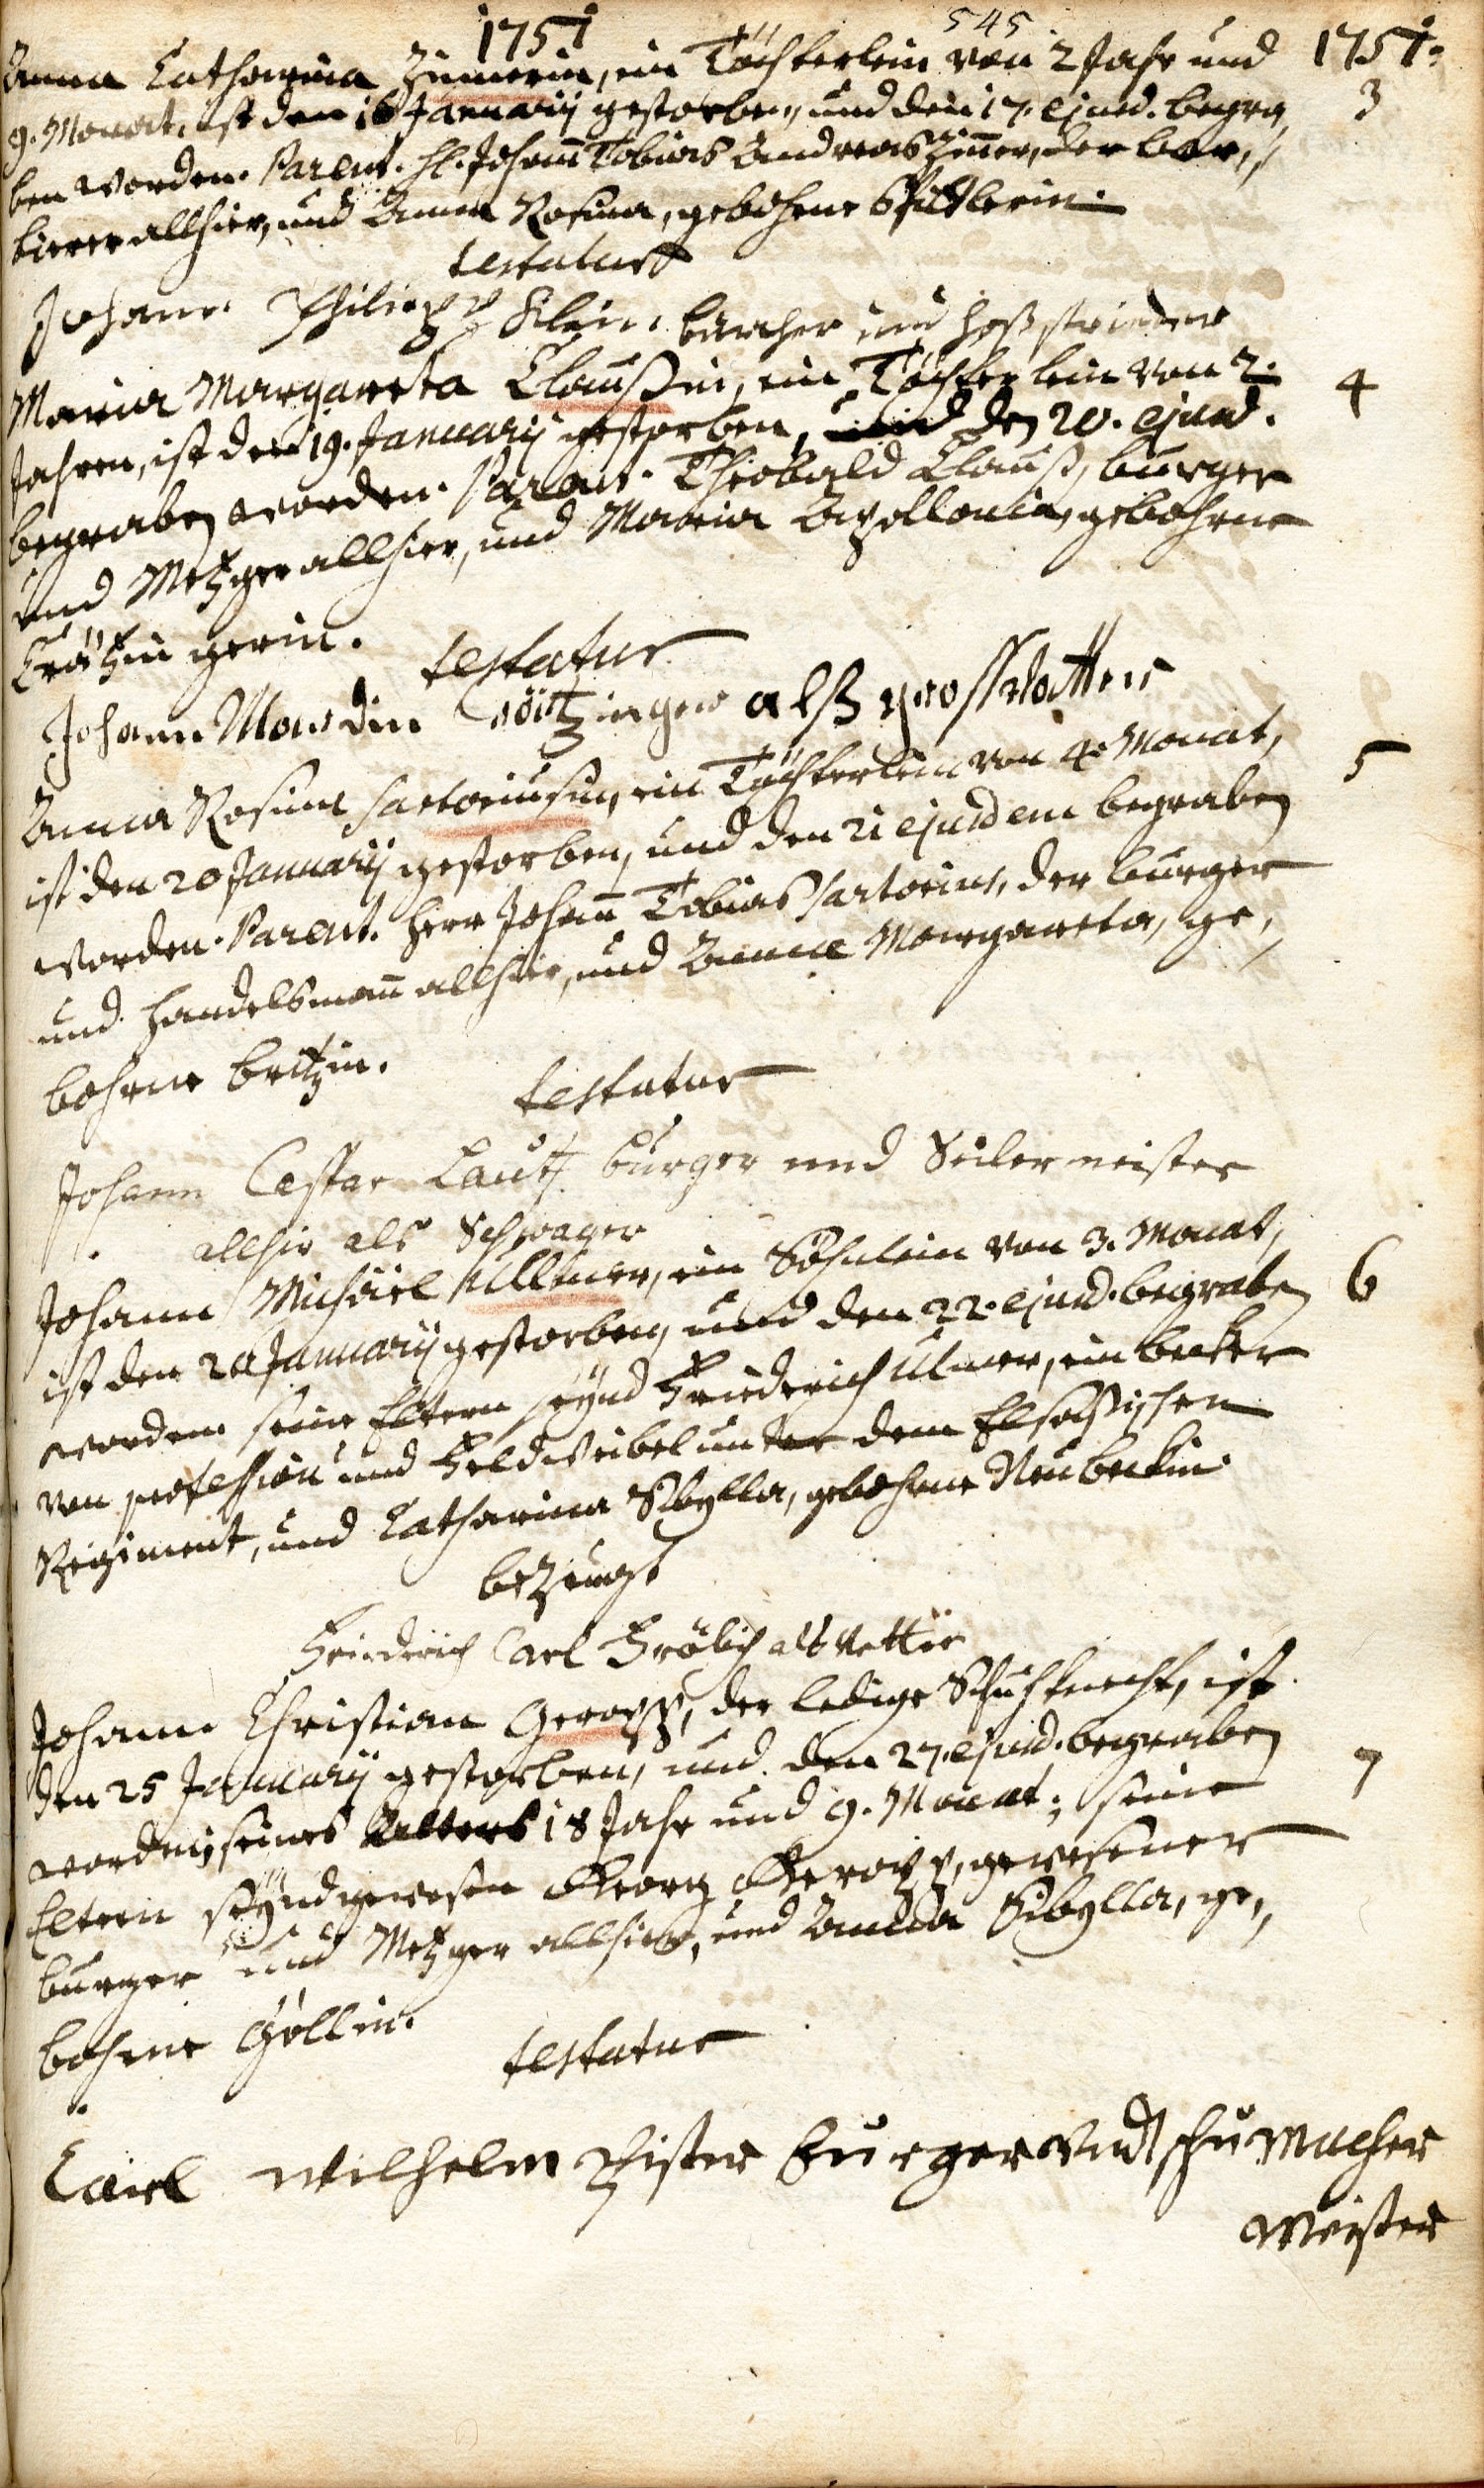 1751
545
1751.
Anna Catharina Zimerin, ein Töchterlein von 2 Jahr und
3
9. Monat, ist den 16 Januarij gestorben, und den 17. ejusd. begra,
ben worden. Parent. H. Johann Tobias Andreas Zimer, der bar,
bierer allhier, und Anna Rosina, gebohrne Spittlerin.
testatur
Johann Philipp Klein. burcher und
Maria Margareta Claussin, ein Töchterlein von 2.
4
Jahren, ist den 19. Januarij gestorben, und den 20. ejusd.
begraben worden. Parent. Theobald Clauss, burger
und Metzger allhier, und Maria Apollonia, gebohrne
Crötzingerin.
testatur
Johann Mardin Cröitzinger alss grossvatter
Anna Rosina Sartoriusin, ein Töchterlein von 4. Monat,
5
ist den 20 Januarij gestorben, und den 21 ejusdem begraben
worden. Parent. Herr Johann Tobias Sartorius, der burger
und Handelsmann allhier, und Anna Margareta, ge,
bohrne Britzin.
testatur
Johann Casspar Lautz burger und Seilermeister
allhir als Schwager
Johann Michäel Ullmer, ein Söhnlein von 3. Monat,
6
ist den 20 Januarij gestorben, und den 22. ejusd. begraben
worden. seine Eltern seynd Friederich Ulmer, ein becker
von profession und Feldweibel unter dem Elsässischen
Regiment, und Catharina Sibylla, gebohrne Neubeckin.
bezeugt
Friederich Carl Frölich als Vetter
Johann Christian Geropp, der ledige Schuhknecht, ist
den 25 Januarij gestorben, und den 27. ejusd. begraben
7
worden, seines Alters 18 Jahr und 9. Monat; seine
Eltern seynd gewesen Georg Geropp, gewesener
burger und Metzger allhier, und Anna Sibylla, ge,
bohrne Göllin.
testatur
Carl Wilhelm Pfister burger und schumacher
Meister